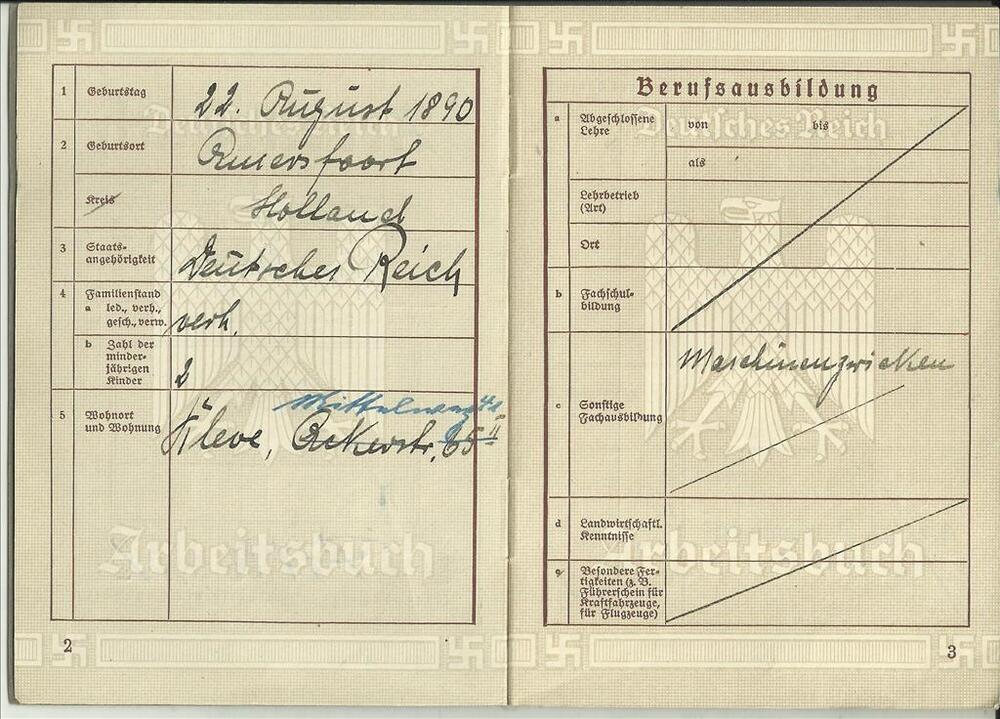 1 Geburtstag 22. August 1890
2 Geburtsort Amersfoort
Kreis Holland
3 Staats-
angehörigkeit Deutsches Reich
4 Familienstand
a led., verh.,
gesch., verw. verh.
b Zahl der
minder-
jährigen
Kinder 2
5 Wohnort
und Wohnung
Mittelweg
Kleve, Ackerstr. 65
Deutsches Reich
Arbeitsbuch
2
Berufsausbildung
a Abgeschlossene
Lehre
von bis
als
Lehrbetrieb
(Art)
Ort
b Fachschul-
bildung
Maschinenzwicken
c Sonstige
Fachausbildung
d Landwirtschaftl.
Kenntnisse
e Besondere Fer-
tigkeiten (z. B.
Führerschein für
Kraftfahrzeuge,
für Flugzeuge)
Deutsches Reich
Arbeitsbuch
3